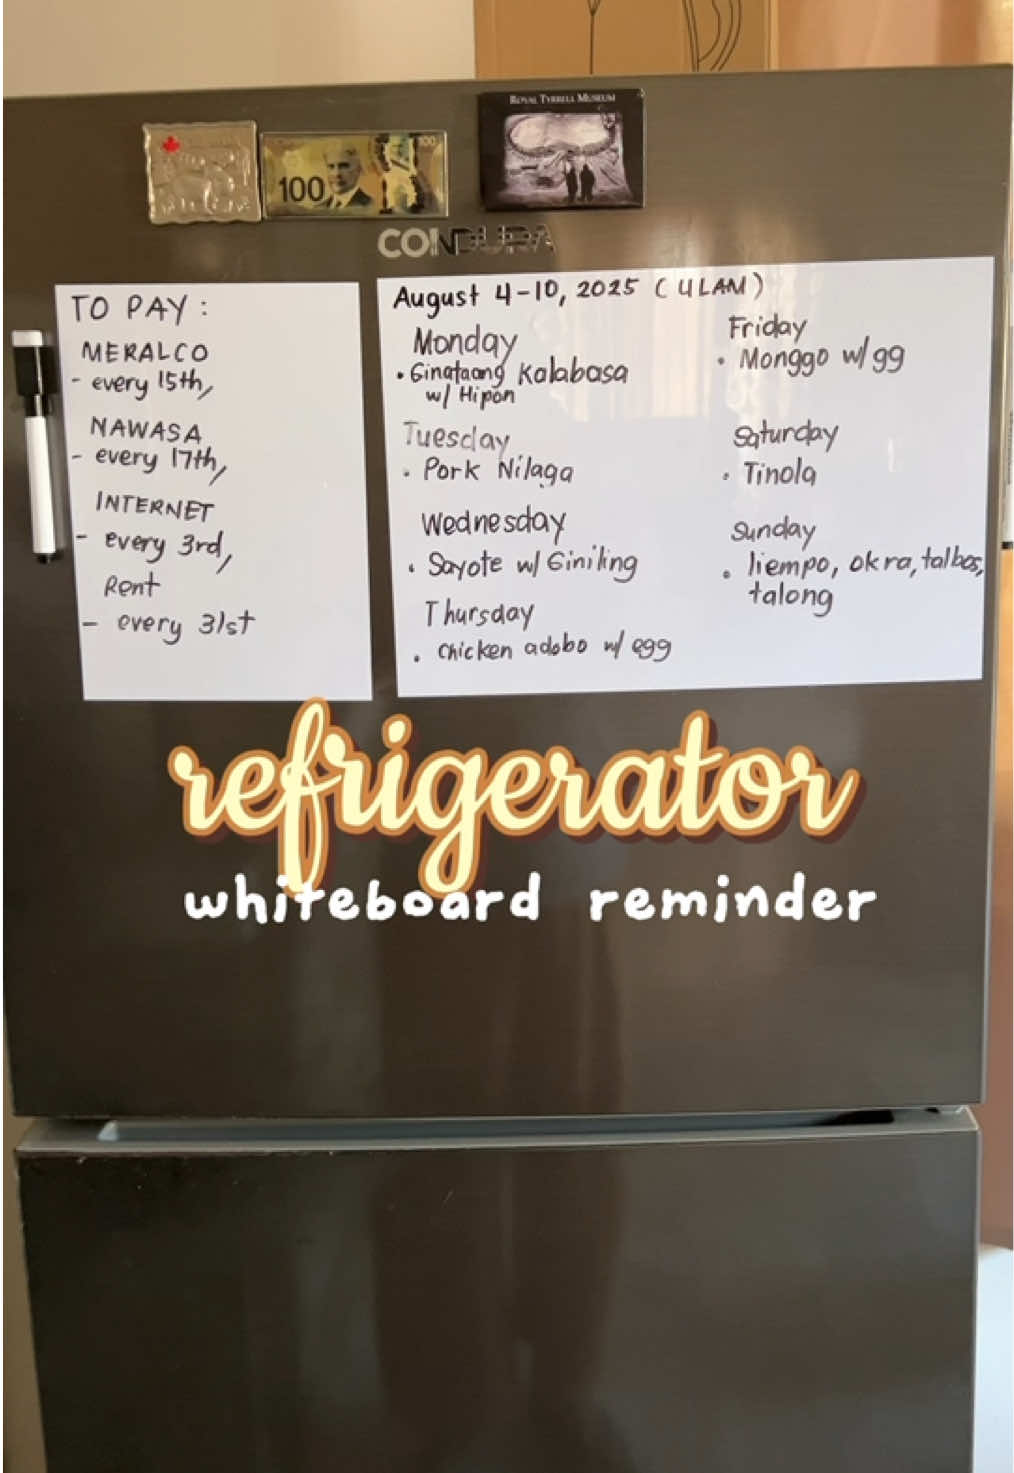 ROYAL TYRRELL MUSEUM
100
100
CONDURA
TO PAY:
MERALCO
- every 15th,
NAWASA
- every 17th,
INTERNET
- every 3rd,
Rent
- every 31st
August 4-10, 2025 (ULAM)
Monday
• Ginataang Kalabasa
w/ Hipon
Tuesday
• Pork Nilaga
Wednesday
• Sayote w/ Giniling
Thursday
• chicken adobo w/ egg
Friday
• Monggo w/ gg
Saturday
• Tinola
Sunday
• liempo, okra, talbos,
talong
refrigerator
whiteboard reminder